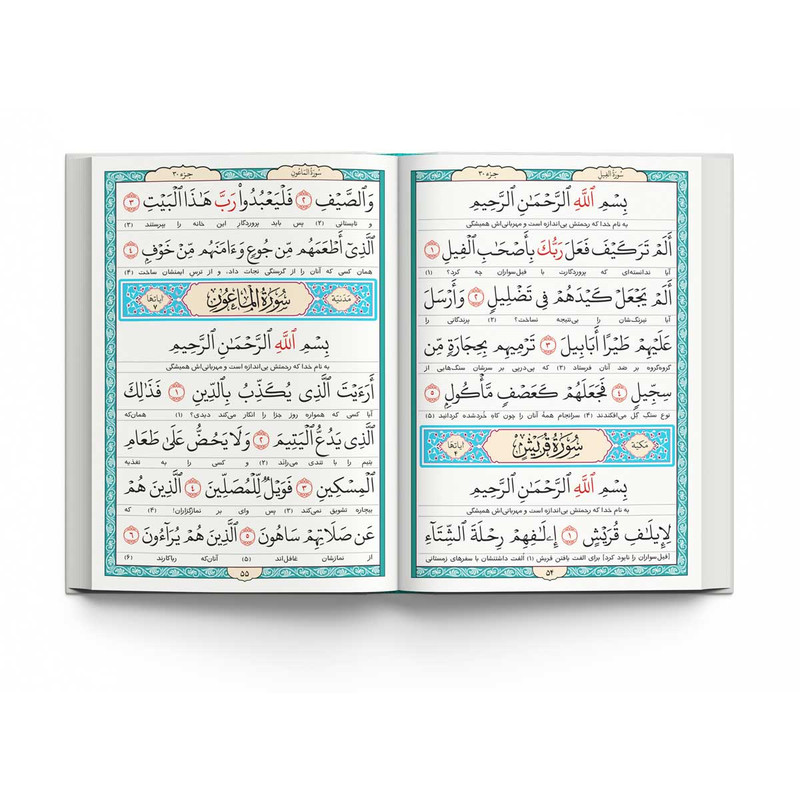 جزء ۳۰
سورة الفیل
بِسْمِ ٱللَّهِ ٱلرَّحْمَـٰنِ ٱلرَّحِيمِ
به نام خدا که رحمتش بی‌اندازه است و مهربانی‌اش همیشگی
أَلَمْ تَرَ كَيْفَ فَعَلَ رَبُّكَ بِأَصْحَـٰبِ ٱلْفِيلِ ۱
آیا ندانسته‌ای که پروردگارت با فیل‌سواران چه کرد؟ (۱)
أَلَمْ يَجْعَلْ كَيْدَهُمْ فِى تَضْلِيلٍ ۲ وَأَرْسَلَ
آیا نیرنگ‌شان را بی‌نتیجه نساخت؟ (۲) پرندگانی را
عَلَيْهِمْ طَيْرًا أَبَابِيلَ ۳ تَرْمِيهِم بِحِجَارَةٍ مِّن
گروه‌گروه بر ضد آنان فرستاد (۳) که پی‌درپی بر سرشان سنگ‌هایی از
سِجِّيلٍ ۴ فَجَعَلَهُمْ كَعَصْفٍ مَّأْكُولٍ ۵
نوع سنگ گل می‌افکندند (۴) سرانجام همهٔ آنان را چون کاهِ خُردشده گردانید (۵)
مکیة
سُورَةُ قُرَيْشٍ
آیاتها ۴
بِسْمِ ٱللَّهِ ٱلرَّحْمَـٰنِ ٱلرَّحِيمِ
به نام خدا که رحمتش بی‌اندازه است و مهربانی‌اش همیشگی
لِإِيلَـٰفِ قُرَيْشٍ ۱ إِۦلَـٰفِهِمْ رِحْلَةَ ٱلشِّتَآءِ
[فیل‌سواران را نابود کرد] برای الفت یافتن قریش (۱) الفت داشتنشان با سفرهای زمستانی
۵۴
جزء ۳۰
سورة الماعون
وَٱلصَّيْفِ ۲ فَلْيَعْبُدُوا۟ رَبَّ هَـٰذَا ٱلْبَيْتِ ۳
و تابستانی (۲) پس باید پروردگار این خانه را بپرستند (۳)
ٱلَّذِىٓ أَطْعَمَهُم مِّن جُوعٍ وَءَامَنَهُم مِّنْ خَوْفٍ ۴
همان کسی که آنان را از گرسنگی نجات داد، و از ترس ایمنشان ساخت (۴)
مدنیة
سُورَةُ ٱلْمَاعُونِ
آیاتها ۷
بِسْمِ ٱللَّهِ ٱلرَّحْمَـٰنِ ٱلرَّحِيمِ
به نام خدا که رحمتش بی‌اندازه است و مهربانی‌اش همیشگی
أَرَءَيْتَ ٱلَّذِى يُكَذِّبُ بِٱلدِّينِ ۱ فَذَٰلِكَ
آیا کسی که همواره روز جزا را انکار می‌کند دیدی؟ (۱) همان‌که
ٱلَّذِى يَدُعُّ ٱلْيَتِيمَ ۲ وَلَا يَحُضُّ عَلَىٰ طَعَامِ
یتیم را با تندی می‌راند (۲) و کسی را به تغذیه
ٱلْمِسْكِينِ ۳ فَوَيْلٌ لِّلْمُصَلِّينَ ۴ ٱلَّذِينَ هُمْ
بیچاره تشویق نمی‌کند (۳) پس وای بر نمازگزاران! (۴) که
عَن صَلَاتِهِمْ سَاهُونَ ۵ ٱلَّذِينَ هُمْ يُرَآءُونَ ۶
از نمازشان غافل‌اند (۵) آنان‌که ریاکارند (۶)
۵۵